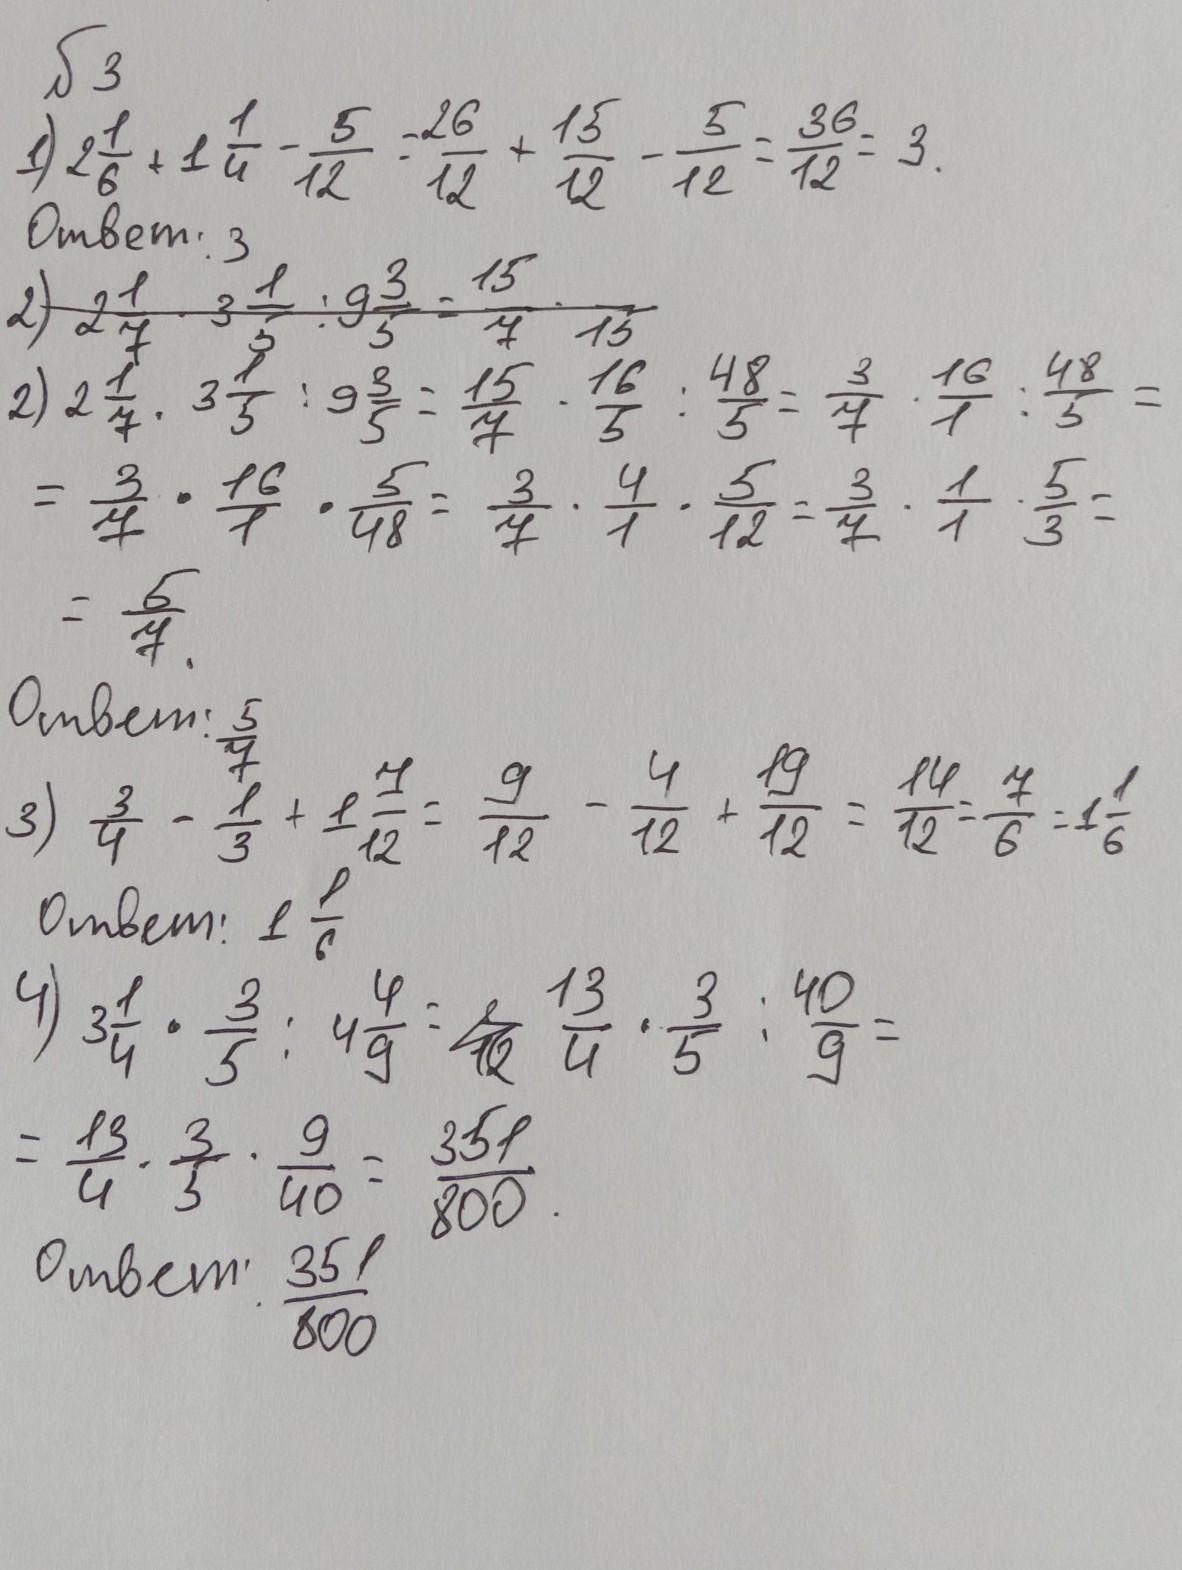 № 3
1) 2 1/6 + 1 1/4 - 5/12 = 26/12 + 15/12 - 5/12 = 36/12 = 3.
Ответ: 3
2) 2 1/7 · 3 1/5 : 9 3/5 = 15/7 · /15
2) 2 1/7 · 3 1/5 : 9 3/5 = 15/7 · 16/5 : 48/5 = 3/7 · 16/1 : 48/5 =
= 3/7 · 16/1 · 5/48 = 3/7 · 4/1 · 5/12 = 3/7 · 1/1 · 5/3 =
= 5/7.
Ответ: 5/7
3) 3/4 - 1/3 + 1 7/12 = 9/12 - 4/12 + 19/12 = 14/12 = 7/6 = 1 1/6
Ответ: 1 1/6
4) 3 1/4 · 3/5 : 4 4/9 = 13/4 · 3/5 : 40/9 =
= 13/4 · 3/5 · 9/40 = 351/800.
Ответ: 351/800